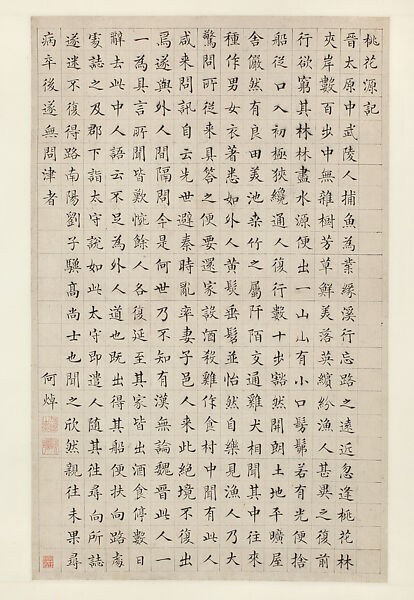 桃花源記
晉太原中武陵人捕魚為業緣溪行忘路之遠近忽逢桃花林
夾岸數百步中無雜樹芳草鮮美落英繽紛漁人甚異之復前
行欲窮其林林盡水源便出一山山有小口髣髴若有光便捨
船從口入初極狹纔通人復行數十步豁然開朗土地平曠屋
舍儼然有良田美池桑竹之屬阡陌交通雞犬相聞其中往來
種作男女衣著悉如外人黃髮垂髫並怡然自樂見漁人乃大
驚問所從來具答之便要還家設酒殺雞作食村中聞有此人
咸來問訊自云先世避秦時亂率妻子邑人來此絕境不復出
焉遂與外人間隔問今是何世乃不知有漢無論魏晉此人一
一為具言所聞皆歎惋餘人各復延至其家皆出酒食停數日
辭去此中人語云不足為外人道也既出得其船便扶向路處
處誌之及郡下詣太守說如此太守即遣人隨其往尋向所誌
遂迷不復得路南陽劉子驥高尚士也聞之欣然親往未果尋
病卒後遂無問津者
何焯